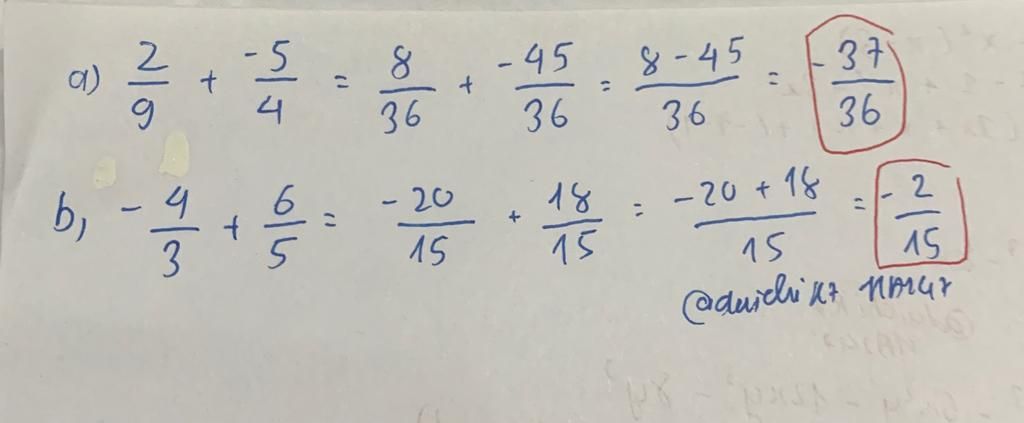 a) 2/9 + -5/4 = 8/36 + -45/36 = 8 - 45/36 = -37/36
b, -4/3 + 6/5 = -20/15 + 18/15 = -20 + 18/15 = -2/15